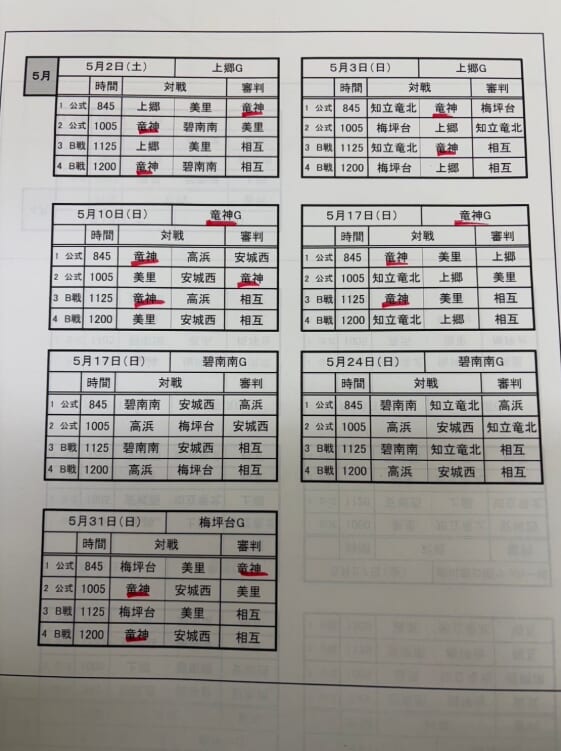 5月
5月2日(土) 上郷G
時間 対戦 審判
1 公式 845 上郷 美里 竜神
2 公式 1005 竜神 碧南南 美里
3 B戦 1125 上郷 美里 相互
4 B戦 1200 竜神 碧南南 相互
5月3日(日) 上郷G
時間 対戦 審判
1 公式 845 知立竜北 竜神 梅坪台
2 公式 1005 梅坪台 上郷 知立竜北
3 B戦 1125 知立竜北 竜神 相互
4 B戦 1200 梅坪台 上郷 相互
5月10日(日) 竜神G
時間 対戦 審判
1 公式 845 竜神 高浜 安城西
2 公式 1005 美里 安城西 竜神
3 B戦 1125 竜神 高浜 相互
4 B戦 1200 美里 安城西 相互
5月17日(日) 竜神G
時間 対戦 審判
1 公式 845 竜神 美里 上郷
2 公式 1005 知立竜北 上郷 美里
3 B戦 1125 竜神 美里 相互
4 B戦 1200 知立竜北 上郷 相互
5月17日(日) 碧南南G
時間 対戦 審判
1 公式 845 碧南南 安城西 高浜
2 公式 1005 高浜 梅坪台 安城西
3 B戦 1125 碧南南 安城西 相互
4 B戦 1200 高浜 梅坪台 相互
5月24日(日) 碧南南G
時間 対戦 審判
1 公式 845 碧南南 知立竜北 高浜
2 公式 1005 高浜 安城西 知立竜北
3 B戦 1125 碧南南 知立竜北 相互
4 B戦 1200 高浜 安城西 相互
5月31日(日) 梅坪台G
時間 対戦 審判
1 公式 845 梅坪台 美里 竜神
2 公式 1005 竜神 安城西 美里
3 B戦 1125 梅坪台 美里 相互
4 B戦 1200 竜神 安城西 相互